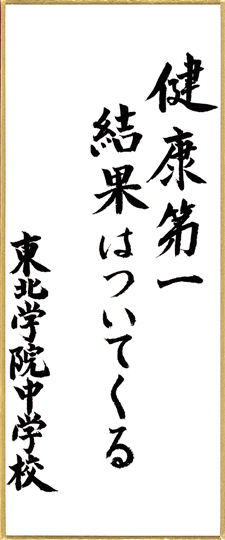 健康第一
結果はついてくる
東北学院中学校